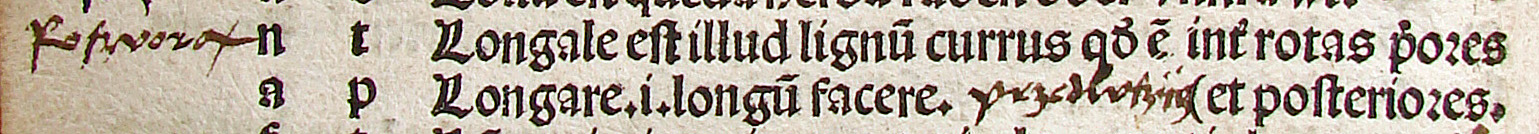 Rosworа n t Longale eſt illud lignū currus qđ ē inť rotas p̄ores
a p Longare.i.longū facere. (et poſteriores.